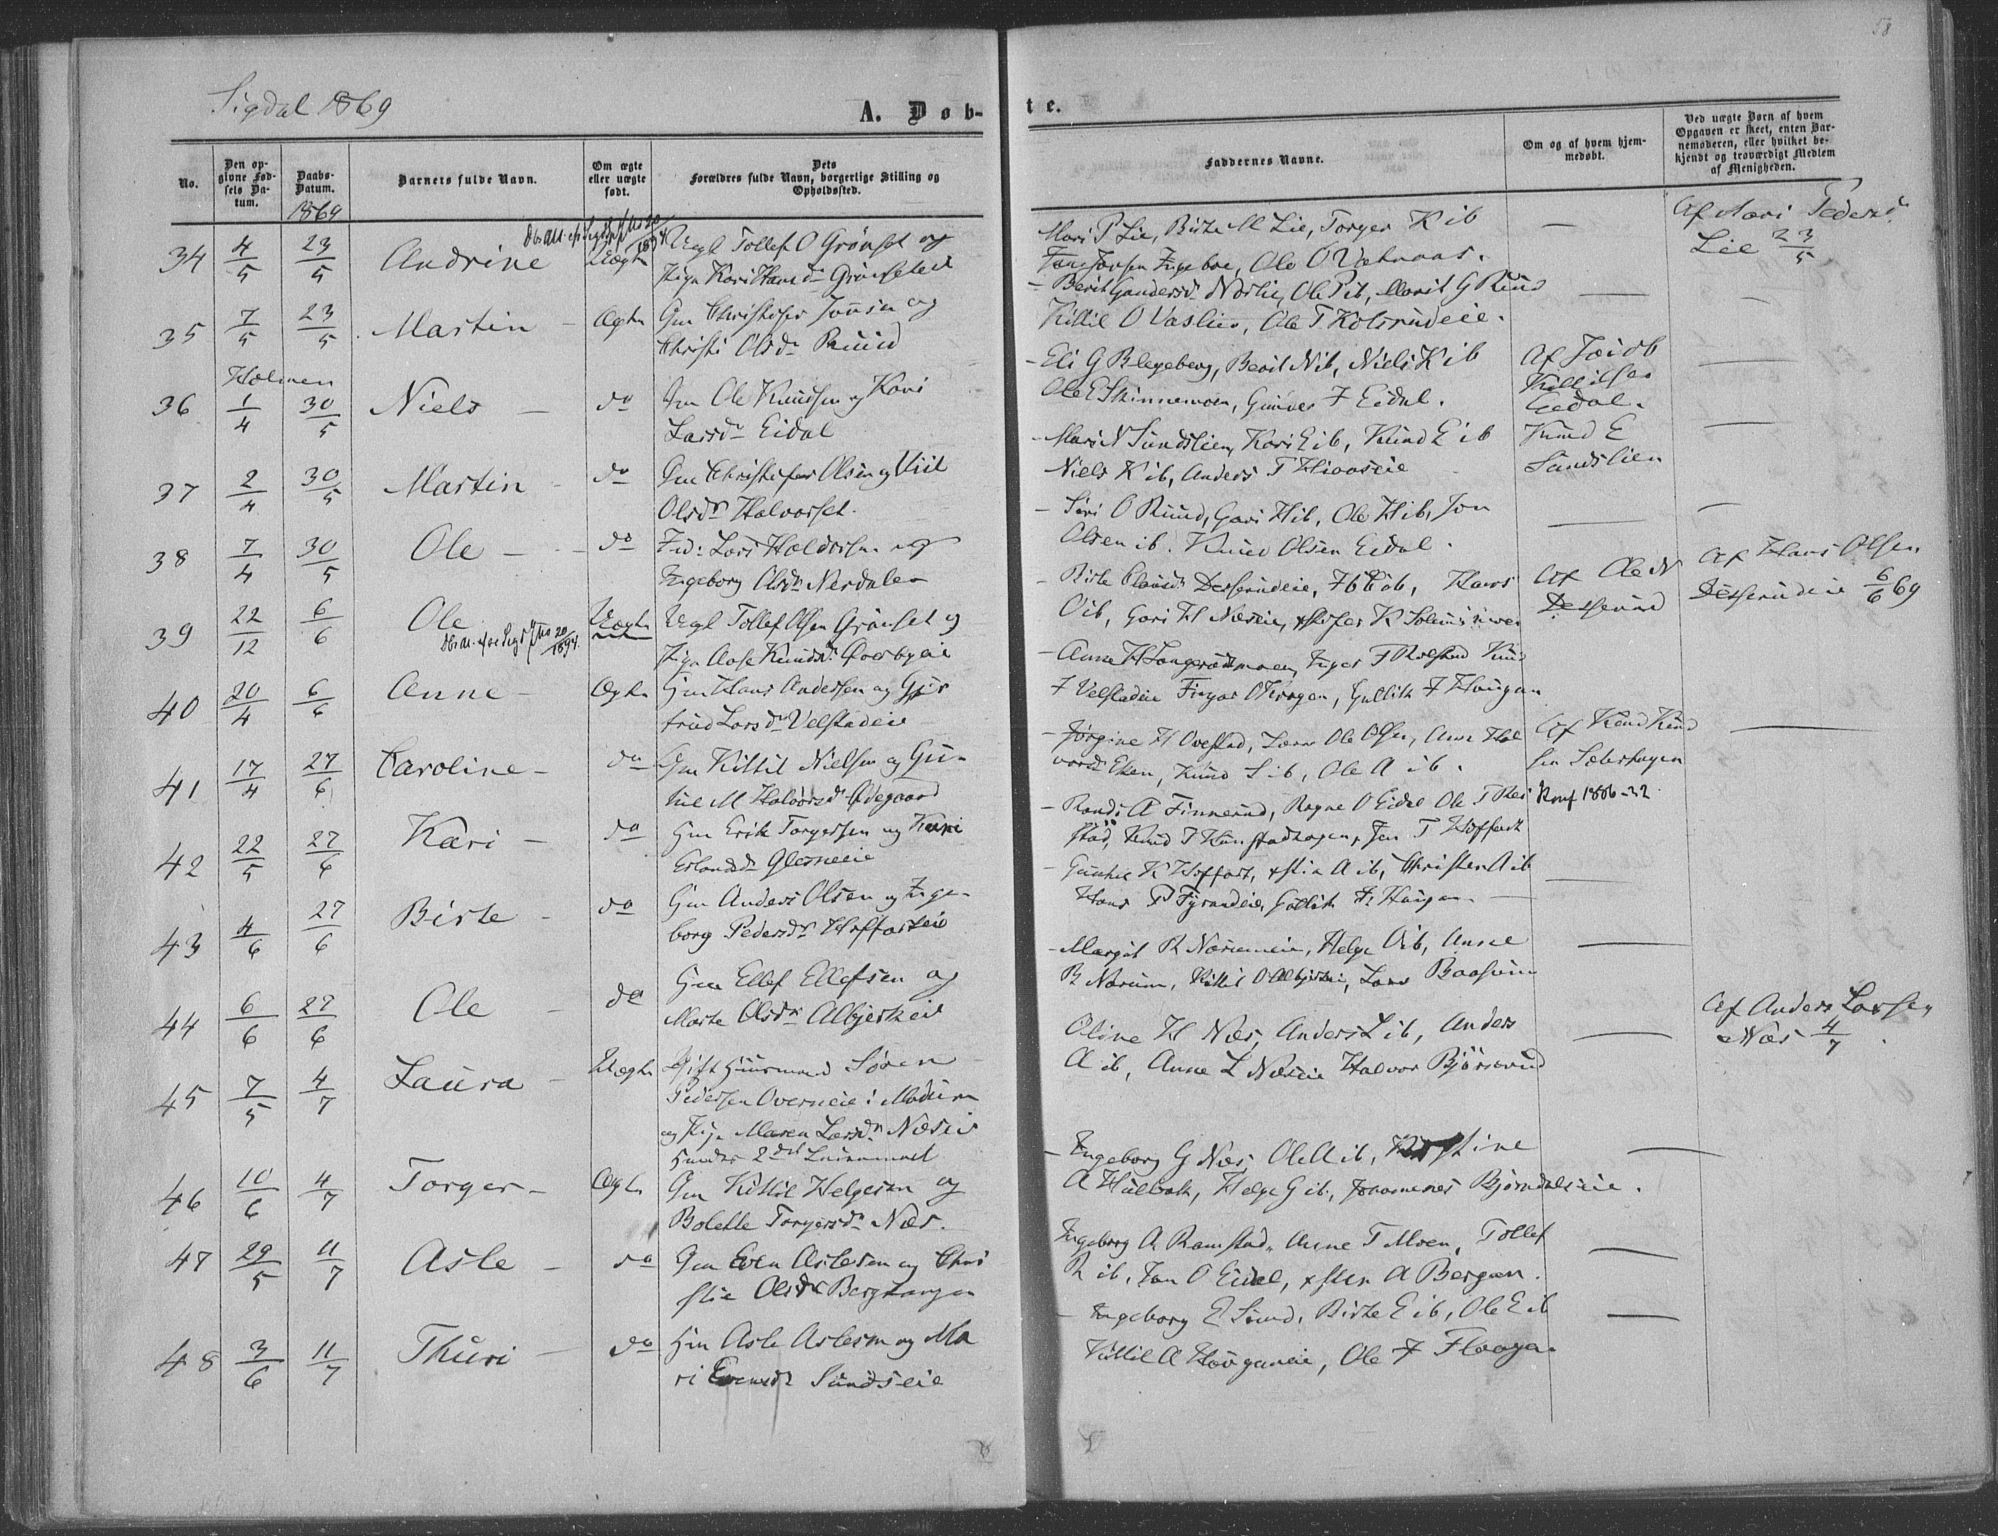 58
Sigdal 1869
A. Døb-
te.
No.
Den op-
givne Fød-
sels Da-
tum.
Daabs-
Datum.
1869
Barnets fulde Navn.
Om ægte
eller uægte
født.
Dets
Forældres fulde Navn, borgerlige Stilling og
Opholdssted.
Faddernes Navne.
Om og af hvem hjem-
medøbt.
Ved uægte Børn af hvem
Opgaven er skeet, enten Bar-
nemoderen, eller hvilket be-
kjendt og troværdigt Medlem
af Menigheden.
34 4/5 23/5 Andrine Uægte Ungk Tollef O Grønset og
Pige Kari Hansd. Grønseteie
Mari P Lie, Birte M Lie, Torger K ib
Ole O Vatnaas.
Af Mari Pedersd
Lie 23/5
35 7/5 23/5 Martin - Ægte Gm Christofer Jonsen og
Christi Olsd. Ruud
- Berit Gundersd. Ole P ib, Marit G Ruud
Kittil O Vaslien, Ole T Kolsrudeie.
Holmen
36 1/4 30/5 Niels - do Gm Ole Knudsen og Kari
Larsd. Eidal
- Eli G Blegeberg, Berit N ib, Niels K ib
Ole E Skinnemoen, Gunver F Eidal.
Af Jacob
Kittilsen
Eidal.
37 2/4 30/5 Martin - do Gm Christofer Olsen og
Olsd. Halvorset.
- Mari N Sundslien, Kari E ib, Knud E ib
Niels K ib, Anders T
Knud E
Sundslien
38 7/4 30/5 Ole - do Ind: Lars Haldorsen og
Ingeborg Olsd. Nerdalen
- Siri O Ruud, Gari H ib, Ole H ib, Jon
Olsen ib. Knud Olsen Eidal.
39 22/12 6/6 Ole Uægte Ungk Tollef Olsen Grønset og
20/1894.
Pige Aase Knudsd. Øverbyeie
- Birte Hans
O ib, Gari H Næseie,
Af Ole N
Af Hans Olsen
6/6 69
40 20/4 6/6 Anne - Ægte Hm Hans Andersen og Gjer
trud Larsd. Velstadeie
- Anne H Langerudmoen, Inger F Rolstad Knud
F Velstadeie Gullik F Haugen
41 17/4 27/6 Caroline - do Gm Kittil Nielsen og Gu-
nil M Halvorsd. Ødegaard
- Jørgine H Ovestad, Ole Olsen, Anne Hal
vorsd. Eken, Knud S ib, Ole A ib.
Af Knud Knud
sen Sæterhagen
42 22/5 27/6 Kari - do Hm Erik Torgersen og Kari
Erlandsd. Glesneeie
- Randi A Finnerud, Ragne O Eidal Ole T Rei
stad, Knud T Kunstadhagen, Jon T Hoffart
Konf 1886-22
43 4/6 27/6 Birte - do Hm Anders Olsen og Inge-
borg Pedersd. Hoffarteie
- Gunhil K Hoffart, A ib, Christen A ib
Hans P Fyrandeie, Gullik H Haugen.
44 6/6 27/6 Ole - do Hm Ellef Ellefsen og
Marte Olsd. Albjerkeie
- Margit R Nærumeie, Helge O ib, Anne
R Nærum, Kittil O Albjerkeie, Lars Baasrum
45 7/5 4/7 Laura - Uægte Gift Huusmand Søren
Pedersen Overneeie i Modum
og Pige Maren Larsd. Næseie
Hendes 2det
Oline H Næs, Anders L ib, Anders
A ib, Anne L Næseie Halvor Bjørnerud
Af Anders Larsen
Næs 4/7
46 10/6 4/7 Torger - Ægte Gm Kittil Helgesen og
Bolette Torgersd. Næs.
- Ingeborg G Næs, Ole A ib, Kirstine
A Hulbak, Helge G ib, Johannes Bjørndalseie.
47 29/5 11/7 Asle - do Gm Even Aslesen og Chri
stie Olsd. Berghagen
Ingeborg A Ramstad, Anne T Moen, Tollef
R ib, Jon O Eidal, A Bergan.
48 3/6 11/7 Thuri - do Hm Asle Aslesen og Ma
ri Evensd. Sundseie
- Ingeborg E Sund, Birte E ib, Ole E ib
Kittil A Haugeneie, Ole F Flaaga.